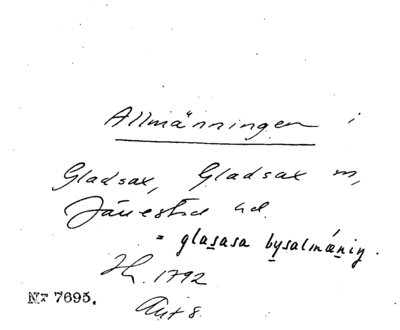 Allmänningen i
Gladsax, Gladsax sn,
Järrestad hd.
= glasasa bysalmäniŋ.
H. 1792
Nr 7695.